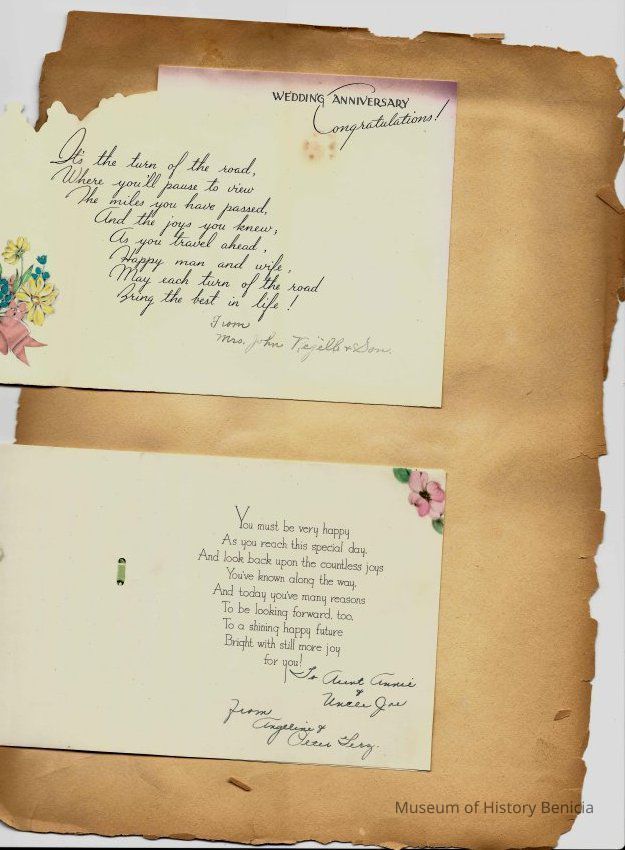 WEDDING ANNIVERSARY
Congratulations!
It's the turn of the road,
Where you'll pause to view
The miles you have passed,
And the joys you knew,
As you travel ahead,
Happy man and wife,
May each turn of the road
Bring the best in life!
From
Mrs. John & Son.
You must be very happy
As you reach this special day,
And look back upon the countless joys
You've known along the way,
And today you've many reasons
To be looking forward, too,
To a shining happy future
Bright with still more joy
for you!
To Aunt Annie
&
Uncle Joe
From
Angeline &
Peter
Museum of History Benicia